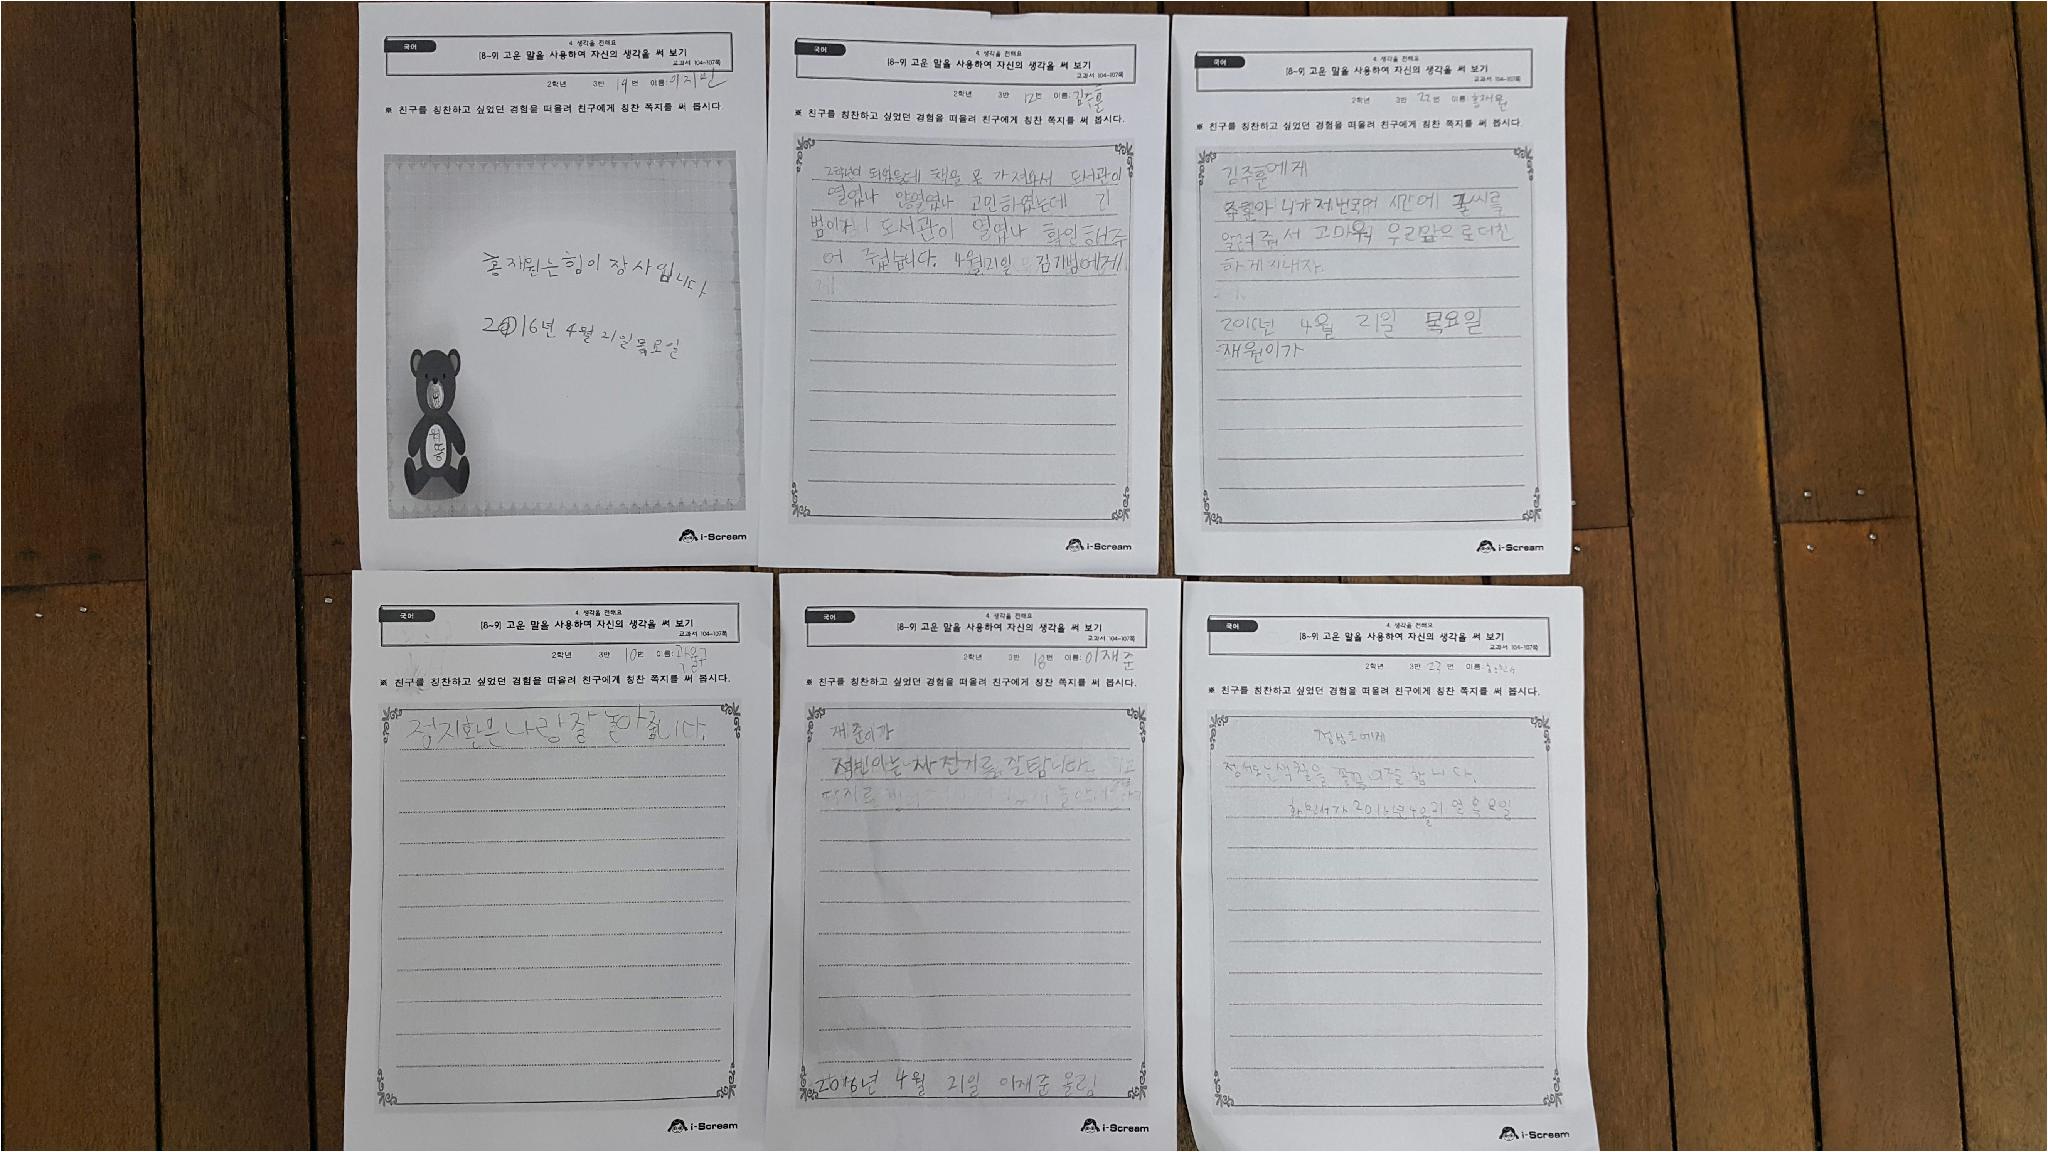 국어
4. 생각을 전해요
[8~9] 고운 말을 사용하여 자신의 생각을 써 보기
교과서 104~107쪽
2학년 3반 19번 이름: 이지민
※ 친구를 칭찬하고 싶었던 경험을 떠올려 친구에게 칭찬 쪽지를 써 봅시다.
홍재원는 힘이 장사입니다
2016년 4월 21일 목요일
i-Scream
국어
4. 생각을 전해요
[8~9] 고운 말을 사용하여 자신의 생각을 써 보기
교과서 104~107쪽
2학년 3반 12번 이름: 김주훈
※ 친구를 칭찬하고 싶었던 경험을 떠올려 친구에게 칭찬 쪽지를 써 봅시다.
2학년이 되었을데 책을 못 가져와서 도서관이
열엽나 안열엽나 고민하였는데 기
범이가 도서관이 열엽나 확인해주
어 주었습니다. 4월21일 김기범에게
i-Scream
국어
4. 생각을 전해요
[8~9] 고운 말을 사용하여 자신의 생각을 써 보기
교과서 104~107쪽
2학년 3반 22번 이름: 홍재원
※ 친구를 칭찬하고 싶었던 경험을 떠올려 친구에게 칭찬 쪽지를 써 봅시다.
김주훈에게
주훈아 니가 저번 국어 시간에 글씨를
알려줘서 고마워 우리앞으로 더친
하게지내자.
2016년 4월 21일 목요일
재원이가
i-Scream
국어
4. 생각을 전해요
[8~9] 고운 말을 사용하여 자신의 생각을 써 보기
교과서 104~107쪽
2학년 3반 10번 이름:
※ 친구를 칭찬하고 싶었던 경험을 떠올려 친구에게 칭찬 쪽지를 써 봅시다.
정지환은 나랑 잘 놀아줍니다.
i-Scream
국어
4. 생각을 전해요
[8~9] 고운 말을 사용하여 자신의 생각을 써 보기
교과서 104~107쪽
2학년 3반 18번 이름: 이재준
※ 친구를 칭찬하고 싶었던 경험을 떠올려 친구에게 칭찬 쪽지를 써 봅시다.
재준이가
자전거를 잘탑니다.
2016년 4월 21일 이재준 올림
i-Scream
국어
4. 생각을 전해요
[8~9] 고운 말을 사용하여 자신의 생각을 써 보기
교과서 104~107쪽
2학년 3반 23번 이름:
※ 친구를 칭찬하고 싶었던 경험을 떠올려 친구에게 칭찬 쪽지를 써 봅시다.
색칠을 잘합니다.
2016년 4월 21일 목요일
i-Scream